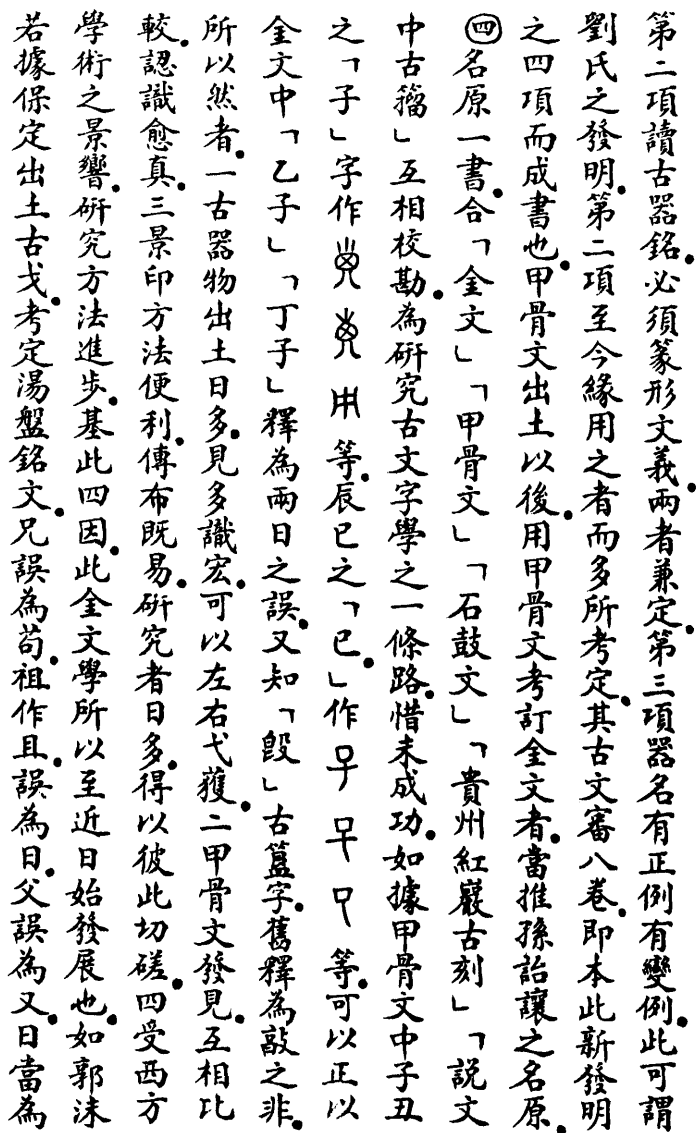 第二項讀古器銘必須篆形文義兩者兼定第三項器名有正例有變例此可謂
劉氏之發明第二項至今緣用之者而多所考定其古文審八卷即本此新發明
之四項而成書也甲骨文出土以後用甲骨文考訂金文者當推孫詒讓之名原
㊃名原一書合「金文」「甲骨文」「石鼓文」「貴州紅巖古刻」「說文
中古籀」互相校勘為研究古文字學之一條路惜未成功如據甲骨文中子丑
之「子」字作等辰巳之「巳」作等可以正以
金文中「乙子」「丁子」釋為兩日之誤又知「𣪘」古簋字舊釋為敲之非
所以然者一古器物出土日多見多識宏可以左右弋獲二甲骨文發見互相比
較認識愈真三景印方法便利傳布既易研究者日多得以彼此切磋四受西方
學術之景響研究方法進步基此四因此金文學所以至近日始發展也如郭沫
若據保定出土古戈考定湯盤銘文兄誤為苟祖作且誤為日父誤為又日當為